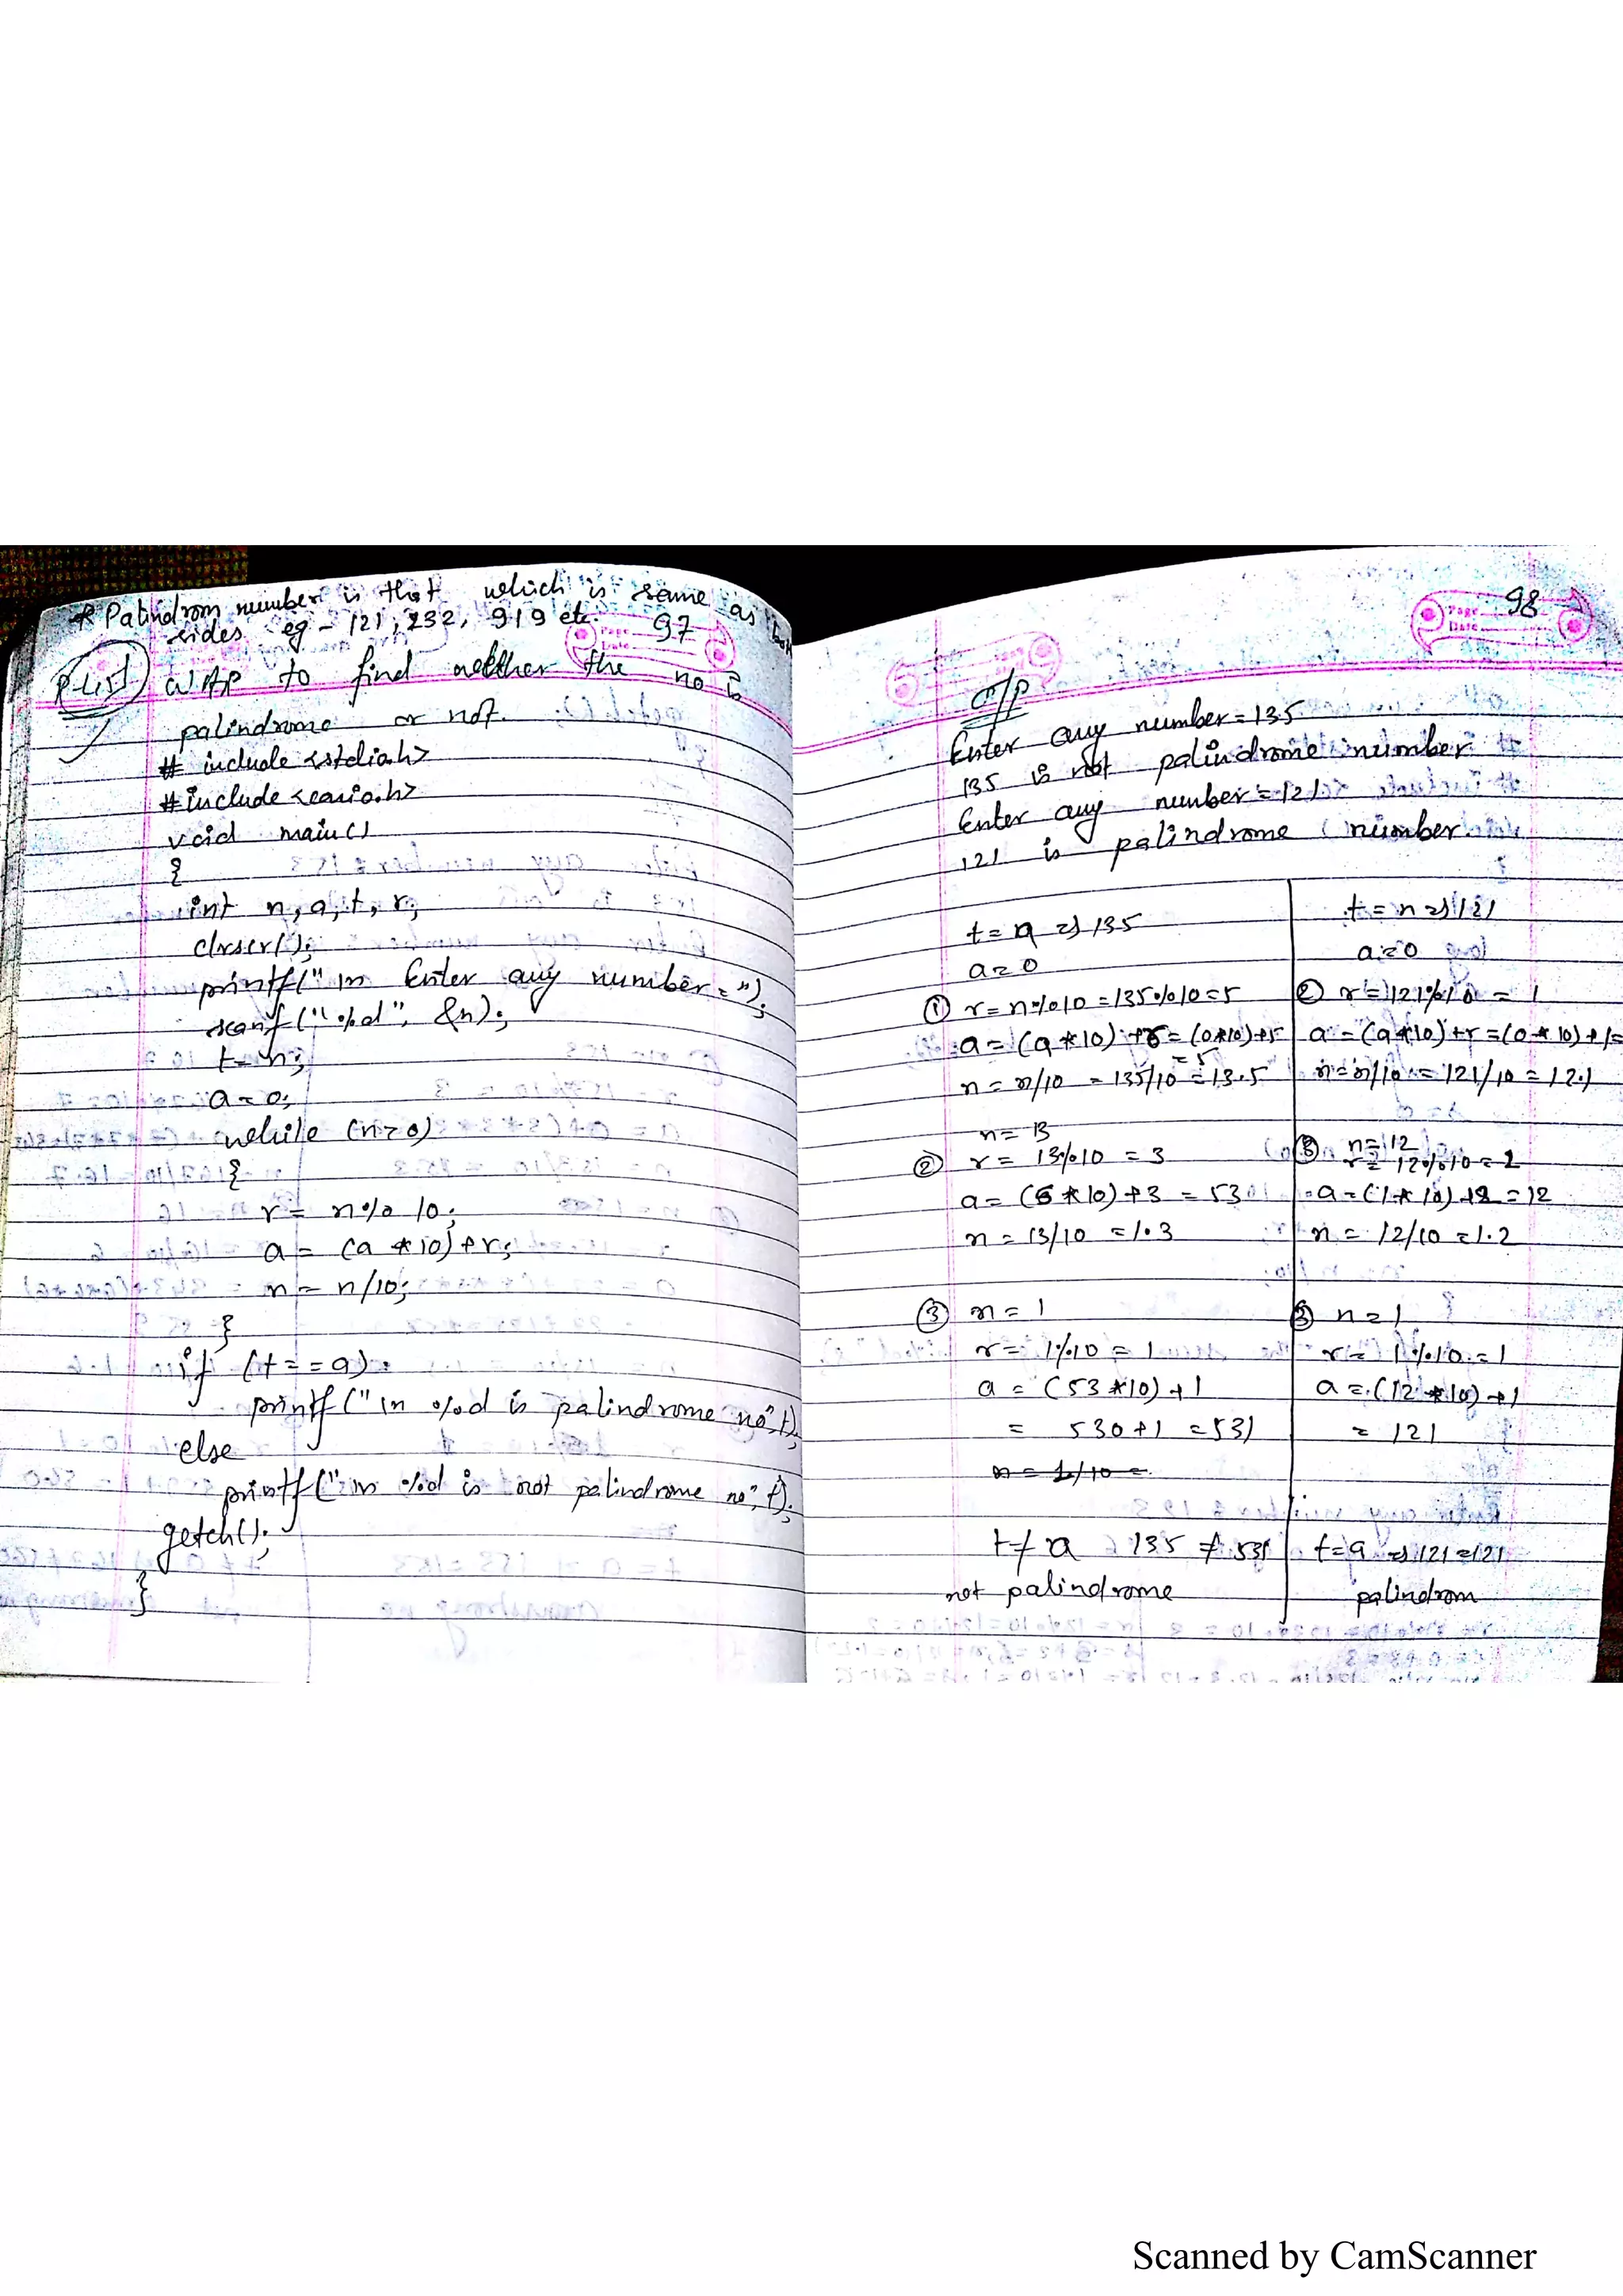 * Palindrom number is that which is same as both
sides eg - 121, 232, 919 etc. 97
WAP to find wether the no is
palindrome or not.
# include <stdio.h>
# include <conio.h>
void main()
{
int n, a, t, r;
clrscr();
printf("\n Enter any number = ");
scanf("%d", &n);
t = n;
a = 0;
while (n>0)
{
r = n % 10;
a = (a * 10) + r;
n = n/10;
}
if (t == a)
printf("\n %d is palindrome no", t);
else
printf("\n %d is not palindrome no", t);
getch();
}
98
Page
Date
O/P
Enter any number = 135
135 is not palindrome number
Enter any number = 121
121 is palindrome number
t = n => 135
a = 0
① r = n%10 = 135%10 = 5
a = (a*10) + r = (0*10)+5
= 5
n = n/10 = 135/10 = 13.5
n = 13
② r = 13%10 = 3
a = (5*10)+3 = 53
n = 13/10 = 1.3
③ n = 1
r = 1%10 = 1
a = (53*10)+1
= 530+1 = 531
n = 1/10 =
t ≠ a 135 ≠ 531
not palindrome
t = n => 121
a = 0
r = 121%10 = 1
a = (a*10)+r = (0*10)+1=
n = n/10 = 121/10 = 12.1
n = 12
r = 12%10 = 2
a = (1*10)+2 = 12
n = 12/10 = 1.2
③ n = 1
r = 1%10 = 1
a = (12*10)+1
= 121
t = a => 121 = 121
palindrom
Scanned by CamScanner